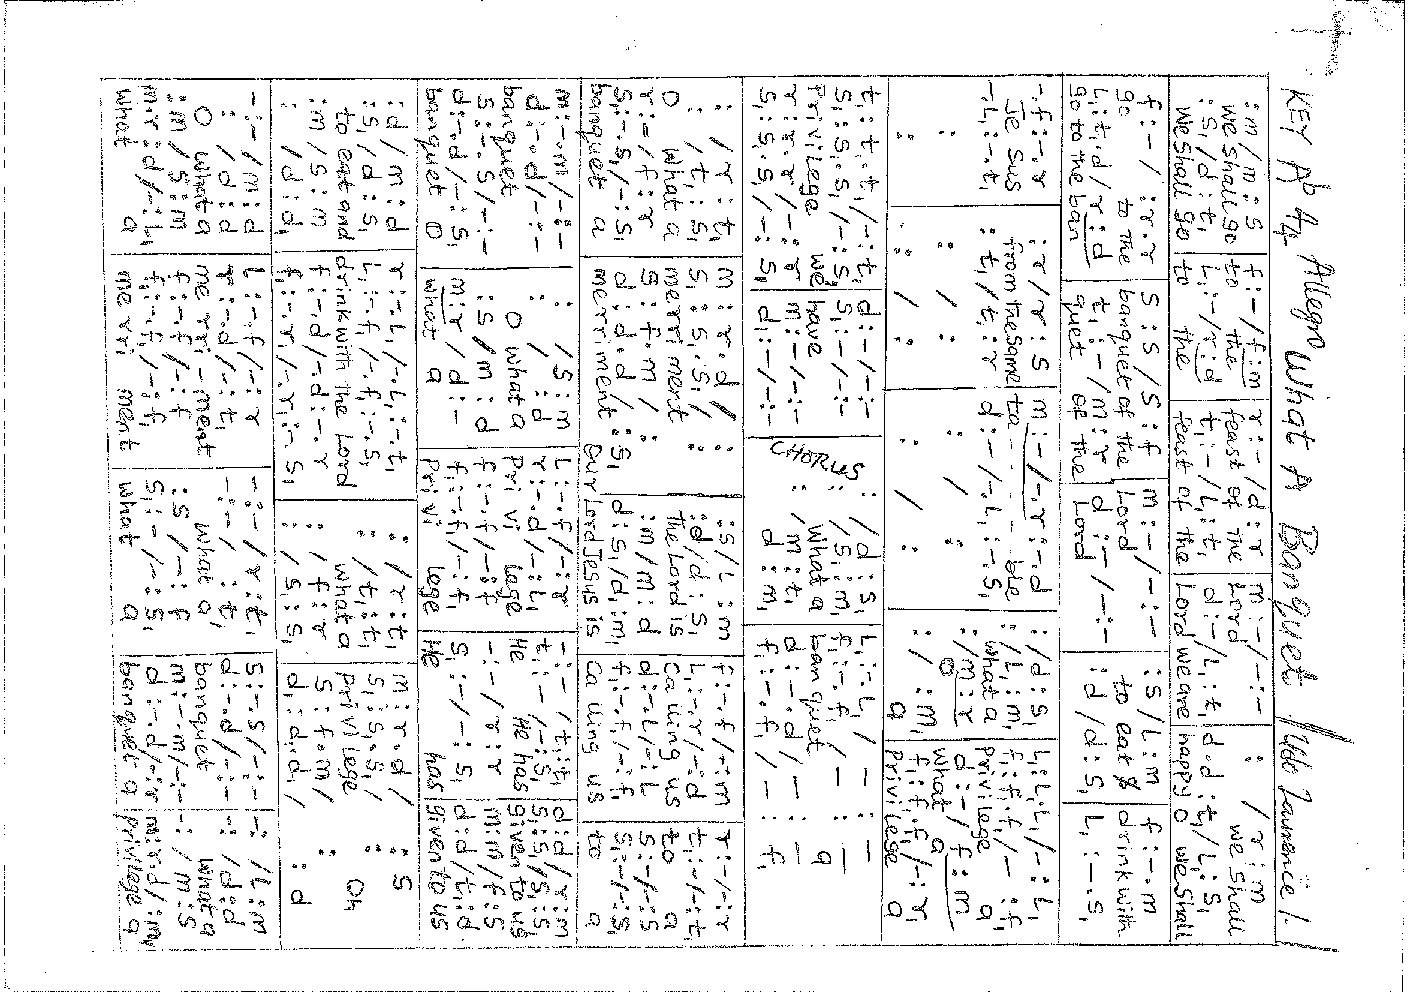 KEY Ab 4/4 Allegro What A Banquet / Udo Laurence I.
:m/m:s | f:-/f:m | r:-/d:r | m:-/-:- | : /r:m
We shall go to the feast of the Lord we shall
:s,/d:t, | L,:-/r:d | t,:-/L,:t, | d:-/L,:t, | d:d.t,/L,:s,
We shall go to the feast of the Lord we are happy O we shall
f:-/ :r.r | s:s/s:f | m:-/-:- | :s/L:m | f:-.m
go to the banquet of the Lord to eat & drink with
L,:t,.d/r:d | t,:-/m:r | d:-/-:- | :d/d:s, | L,:-.s,
go to the ban quet of the Lord
-.f:-.r | :r/r:s | m:-/-.r:-.d | : /d:s, | L,:L,.L,/-:L,
Je sus from the same ta - - - ble what a Privilege a
-.L,:-.t, | :t,/t,:r | d:-/-.L,:-.s, | : /L,:m, | f,:f,.f,/-:f,
: | : / : | : / : | : /m:r | d:-/f:m
O what a
: | : / : | : / : | : / :m, | f,:f,.f,/-:r,
a Privilege a
t,:t,.t,/-:t, | d:-/-:- | CHORUS : /d:s, | L,:-.L,/-:-
s,:s,.s,/-:s, | s,:-/-:- | : /s,:m, | f,:-.f,/-:-
Privilege we have What a banquet a
r:r.r/-:r | m:-/-:- | : /m:t, | d:-.d/-:-
s,:s,.s,/-:s, | d,:-/-:- | d:m, | f,:-.f,/-:f,
: /r:t, | m:r.d/ : | :s/L:m | f:-.f/-:m | r:-/-:r
: /t,:s, | s,:s,.s,/ : | :d/d:s, | L,:-.r/-:d | t,:-/-:t,
O what a merriment the Lord is calling us to a
r:-/f:r | s:f.m/ : | :m/m:d | d:-.L/-:L | s:-/-:s
s,:-.s,/-:s, | d:d.d/ :s, | d:s,/d,:m, | f,:-.f,/-:f, | s,:-/-:s,
banquet a merriment our Lord Jesus is calling us to a
m:-.m/-:- | : /s:m | L:-.f/-:r | -:-/t,:t, | d:d/r:m
d:-.d/-:- | : /:d | r:-.d/-:L, | t,:-/-:s, | s,:s,/s,:s
banquet O what a privi lege He He has given to us
s:-.s/-:- | :s/m:d | f:-.f/-:f | -:-/r:r | m:m/f:s
d:-.d/-:s, | m:r/d:- | f,:-.f,/-:f, | s,:-/-:s, | d:d/t,:d
banquet O what a privi lege He has given to us
:d/m:d | r:-.L,/-.L,:-.t, | : /r:t, | m:r.d/ :s
:s,/d:s, | L,:-.f,/-.f,:-.s, | : /t,:t, | s,:s,.s,/ :
to eat and drink with the Lord what a privilege Oh,
:m/s:m | f:-.d/-.d:-.r | : /f:r | s:f.m/ :
: /d:d, | f,:-.r,/-.r,:-.s, | : /s,:s, | d,:d.d,/ :d
-:-/m:d | L:-.f/-:r | -:-/r:t, | s:-.s/-:- | -: /L:m
: /d:d | r:-.d/-:t, | -:-/ :t, | d:-.d/-:- | -: /d:d
O what a merri-ment what a banquet what a
:m/s:m | f:-.f/-:f | :s/-:f | m:-.m/-:- | -: /m:s
m:r:d/-:L, | f,:-.f,/-:f, | s,:-/-:s, | d:-.d/-:r | m:r.d/:m,
what a merri ment what a banquet a privilege a